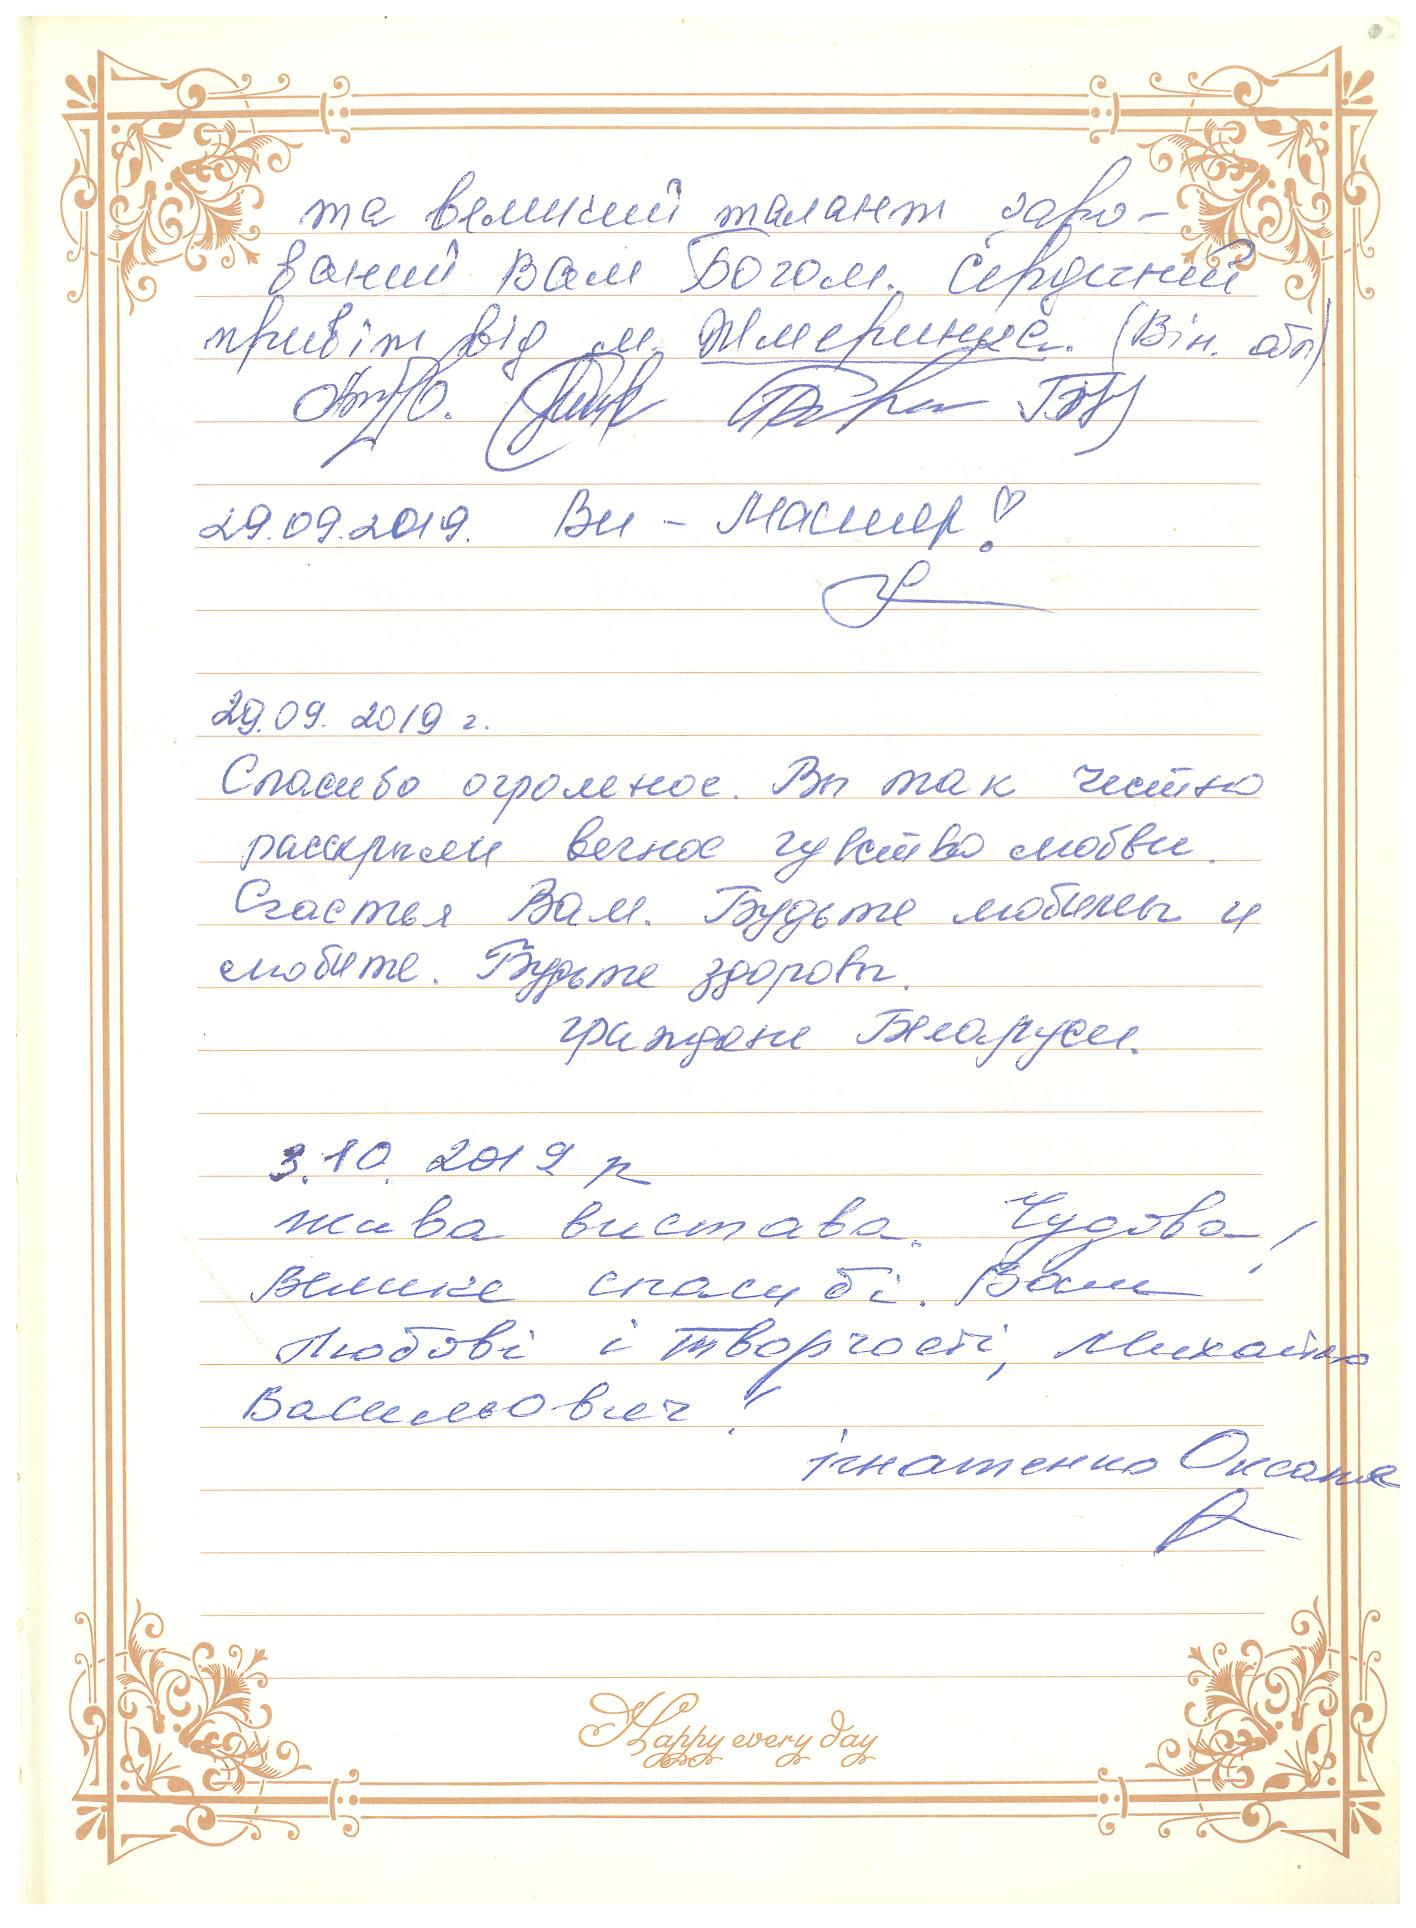 та великий талант даро-
ваний Вам Богом. Сердечний
привіт від м. Жмеринка. (Він. обл)
29.09.2019. Ви – Мастер!
29.09.2019 г.
Спасибо огромное. Вы так честно
раскрыли вечное чувство любви.
Счастья Вам. Будьте любимы и
любите. Будьте здоровы.
граждане Беларуси.
3.10.2019 р
Жива вистава. Чудова!
Велике спасибі. Вам
Любові і Творчості, Михайло
Васильович!
Ігнатенко Оксана
Happy every day